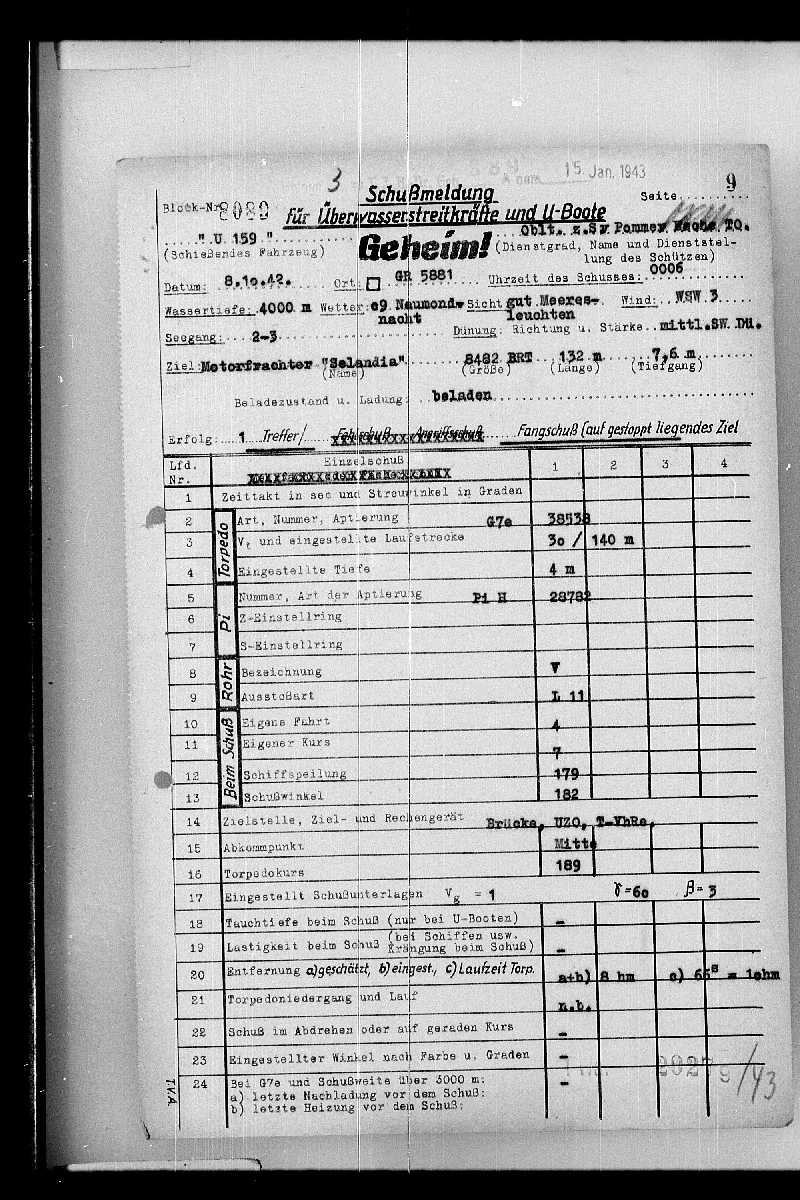 15. Jan. 1943
3
9
Schußmeldung
Seite
Block-Nr. 8089
für Überwasserstreitkräfte und U-Boote
" U 159 "
Geheim!
Oblt. z.S. v Pommer TO.
(Schießendes Fahrzeug)
(Dienstgrad, Name und Dienststel-
lung des Schützen)
Datum: 8.10.42. Ort: GR 5881 Uhrzeit des Schusses: 0006
Wassertiefe: 4000 m Wetter: c9 Neumond- Sicht gut Meeres- Wind: WSW 3
nacht leuchten
Seegang: 2-3 Dünung: Richtung u. Stärke mittl.SW. Dü.
Ziel: Motorfrachter "Selandia" 8482 BRT 132 m 7,6 m
(Name) (Größe) (Länge) (Tiefgang)
Beladezustand u. Ladung: beladen
Erfolg: 1 Treffer/ Fehlschuß Angriffsschuß Fangschuß (auf gestoppt liegendes Ziel
Lfd. Nr. Einzelschuß 1 2 3 4
1 Zeittakt in sec und Streuwinkel in Graden
Torpedo
2 Art, Nummer, Aptierung G7e 38538
3 Vt und eingestellte Laufstrecke 30 / 140 m
4 Eingestellte Tiefe 4 m
Pi
5 Nummer, Art der Aptierung Pi H 28782
6 Z-Einstellring
7 S-Einstellring
Rohr
8 Bezeichnung V
9 Ausstoßart L 11
Beim Schuß
10 Eigene Fahrt 4
11 Eigener Kurs 7
12 Schiffspeilung 179
13 Schußwinkel 182
14 Zielstelle, Ziel- und Rechengerät Brücke, UZO, T-VhRe.
15 Abkommpunkt Mitte
16 Torpedokurs 189
17 Eingestellt Schußunterlagen Vg = 1 γ=60 β=3
18 Tauchtiefe beim Schuß (nur bei U-Booten) -
19 Lastigkeit beim Schuß (bei Schiffen usw. Krängung beim Schuß) -
20 Entfernung a) geschätzt, b) eingest., c) Laufzeit Torp. a+b) 8 hm c) 66s = 10hm
21 Torpedoniedergang und Lauf n.b.
22 Schuß im Abdrehen oder auf geraden Kurs -
23 Eingestellter Winkel nach Farbe u. Graden -
24 Bei G7e und Schußweite über 3000 m: -
a) letzte Nachladung vor dem Schuß:
b) letzte Heizung vor dem Schuß:
T.V.A.
/43